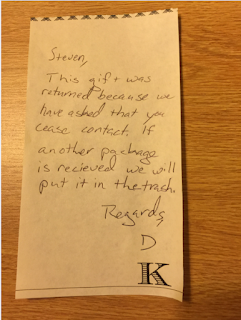 Steven,
This gift was
returned because we
have asked that you
cease contact. If
another pacakage
is recieved we will
put it in the trash.
Regards,
D
K